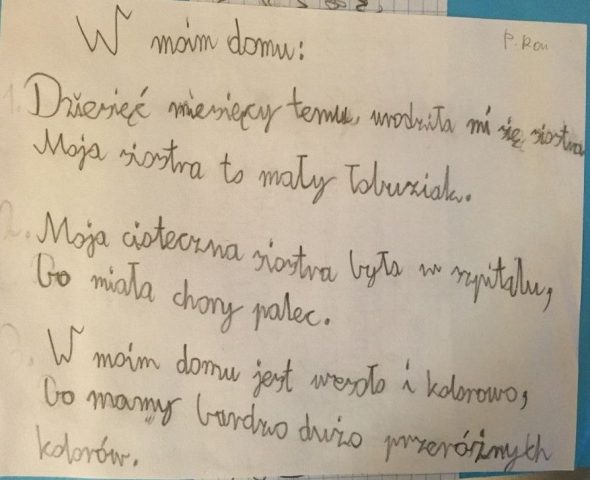 W moim domu:
1. Dziesięć miesięcy temu, urodziła mi się siostra
Moja siostra to mały łobuziak.
2. Moja cioteczna siostra była w szpitalu,
bo miała chory palec.
3. W moim domu jest wesoło i kolorowo,
bo mamy bardzo dużo przeróżnych
kolorów.